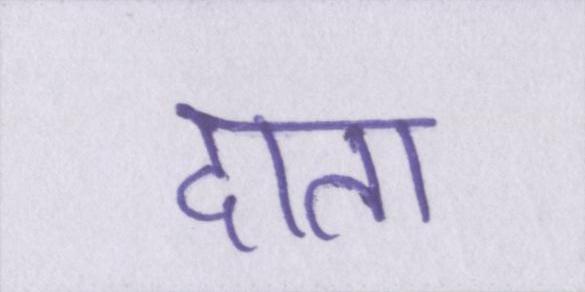 दाता